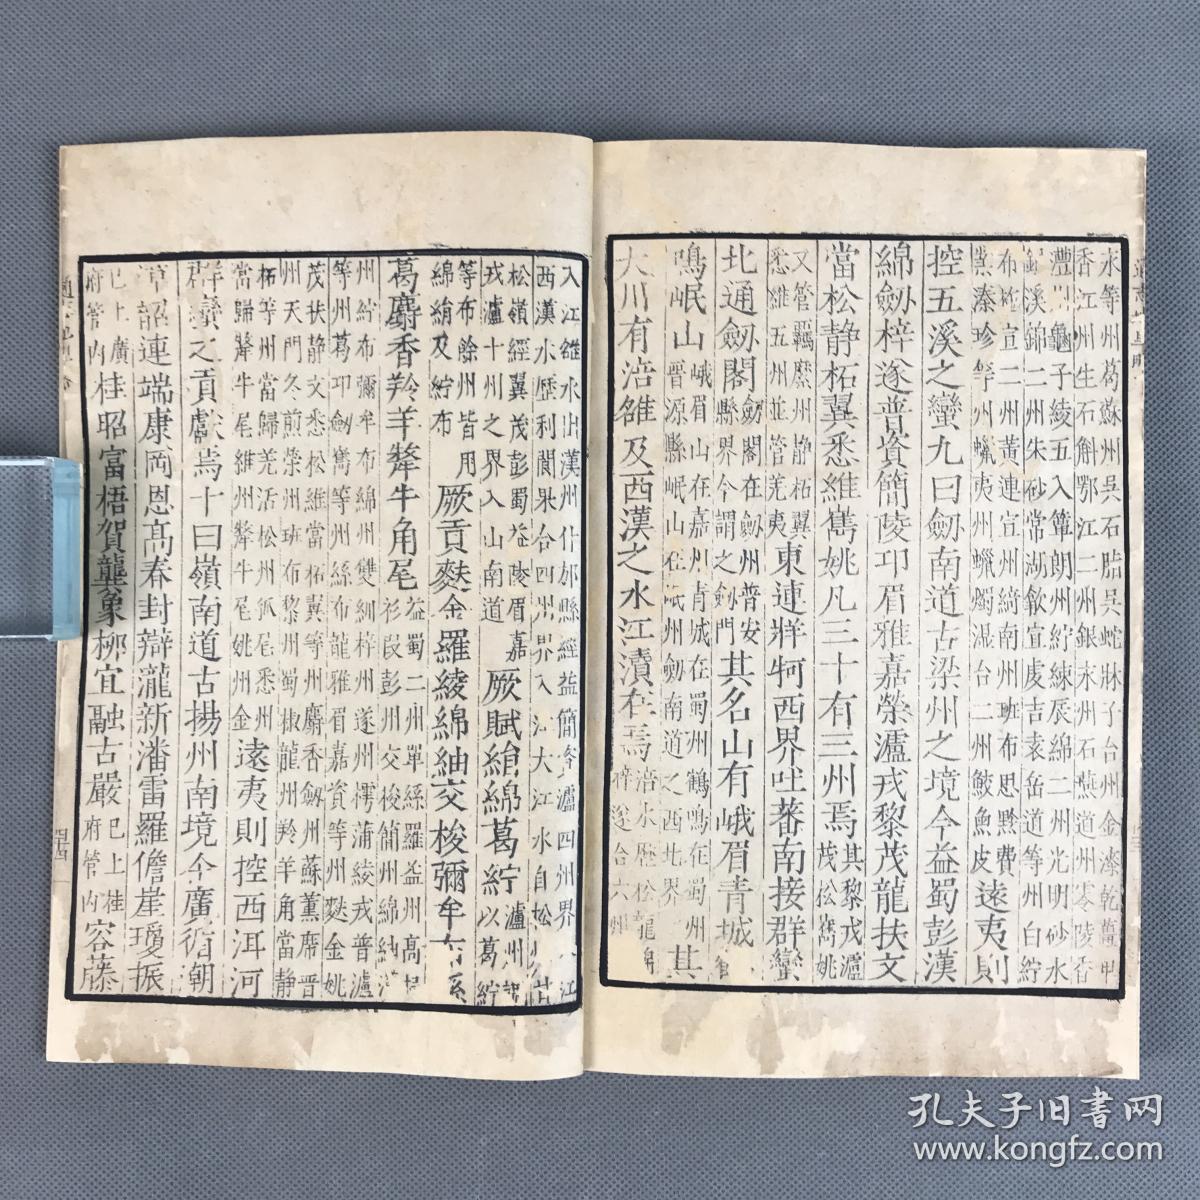 永等州葛蘇州吳石脂吳蛇牀子台州金漆乾薑甲
香江州生石斛鄂江二州銀木州石𧄼道州零陵香
澧州龜子綾五入簟朗州紵練辰綿二州光明砂水
銀溪錦二州朱砂常湖歙宣虔吉袁岳道等州白紵
布 宣二州黃連宣州綺南州班布思黔費
業溱珍等州蠟夷州蠟燭湿台二州鮫魚皮遠夷則
控五溪之蠻九曰劒南道古梁州之境今益蜀彭漢
綿劒梓遂普資簡陵邛眉雅嘉榮瀘戎黎茂龍扶文
當松静柘翼悉維嶲姚凡三十有三州焉其黎戎瀘
茂松嶲姚
又管羈縻州静柘翼
悉維五州並管羌夷東連牂牁西界吐蕃南接群蠻
北通劒閣劒閣在劒州普安
縣界今謂之劒門其名山有峨眉青城
鳴岷山峨眉山在嘉州青城在蜀州鶴鳴在蜀州
晋源縣岷山在茂州劒南道之西北界其
大川有涪雒及西漢之水江瀆在焉涪水歷松龍綿
梓遂合六州
入江雒水出漢州什邡縣經益簡資瀘四州界入江
西漢水歷利閬果合四州界入江大江水自松州甘
松嶺經翼茂彭蜀益陵眉嘉
戎瀘十州之界入山南道厥賦絹綿葛紵瀘州
以葛紵
等布餘州皆用
綿絹及紵布厥貢麩金羅綾綿紬交梭彌牟布
葛麝香羚羊犛牛角尾益蜀二州單絲羅益州高
衫段彭州交梭簡州綿紬
州紵布彌牟布綿州雙紃梓州遂州樗蒲綾戎普瀘
等州葛邛劒嶲等州絲布龍雅眉嘉資等州麩金姚
茂扶静文悉松維當柘翼等州麝香劒州蘇薰席晋
州天門冬煎榮州班布黎州蜀椒龍州羚羊角當静
柘等州當歸羌活松州狐尾悉州
當歸犛牛尾維州犛牛尾姚州金遠夷則控西洱河
群蠻之貢獻焉十曰嶺南道古揚州南境今廣循潮
漳韶連端康岡恩高春封辯瀧新潘雷羅儋崖瓊振
已上廣
府管內桂昭富梧賀龔象柳宜融古嚴已上桂
府管內容藤
四十四
孔夫子旧書网
www.kongfz.com